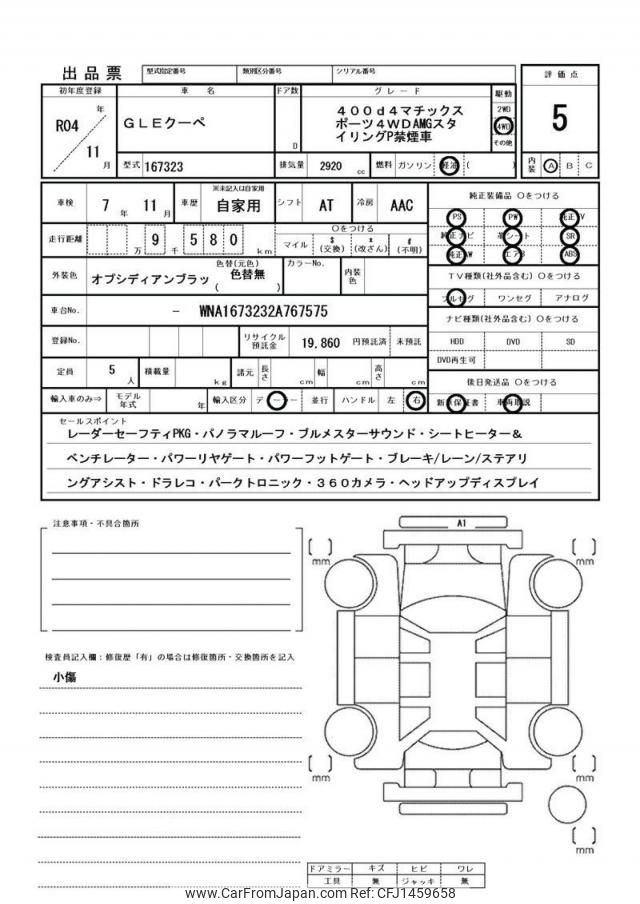 出品票
型式指定番号
類別区分番号
シリアル番号
評価点
初年度登録
車 名
ドア数
グレード
駆動
R04 年
11 月
GLEクーペ
D
400d4マチックス
ポーツ4WDAMGスタ
イリングP禁煙車
2WD
4WD
その他
5
型式
167323
排気量
2920
cc
燃料
ガソリン
軽油
( )
内装
A B C
車検
7 年 11 月
車歴
※未記入は自家用
自家用
シフト
AT
冷房
AAC
純正装備品 ○をつける
PS
PW
純正TV
純正ナビ
革シート
SR
純正AW
エアB
ABS
走行距離
万 9 千 5 8 0 km
○をつける
マイル
$
(交換)
*
(改ざん)
#
(不明)
外装色
オブシディアンブラッ
色替(元色)
色替無
( )
カラーNo.
内装色
TV種類(社外品含む) ○をつける
フルセグ
ワンセグ
アナログ
車台No.
－ WNA1673232A767575
ナビ種類(社外品含む) ○をつける
登録No.
リサイクル
預託金
19,860
円預託済
未預託
HDD
DVD
SD
DVD再生可
定員
5 人
積載量
kg
諸元
長さ
cm
幅
cm
高さ
cm
後日発送品 ○をつける
輸入車のみ⇒
モデル
年式
年
輸入区分
ディーラー
並行
ハンドル
左
右
新車保証書
車両取説
セールスポイント
レーダーセーフティPKG・パノラマルーフ・ブルメスターサウンド・シートヒーター&
ベンチレーター・パワーリヤゲート・パワーフットゲート・ブレーキ/レーン/ステアリ
ングアシスト・ドラレコ・パークトロニック・360カメラ・ヘッドアップディスプレイ
注意事項・不具合箇所
検査員記入欄：修復歴「有」の場合は修復箇所・交換箇所を記入
小傷
A1
[ ]
mm
[ ]
mm
[ ]
mm
[ ]
mm
[ ]
mm
ドアミラー
キズ
ヒビ
ワレ
工具
無
ジャッキ
無
www.CarFromJapan.com Ref: CFJ1459658